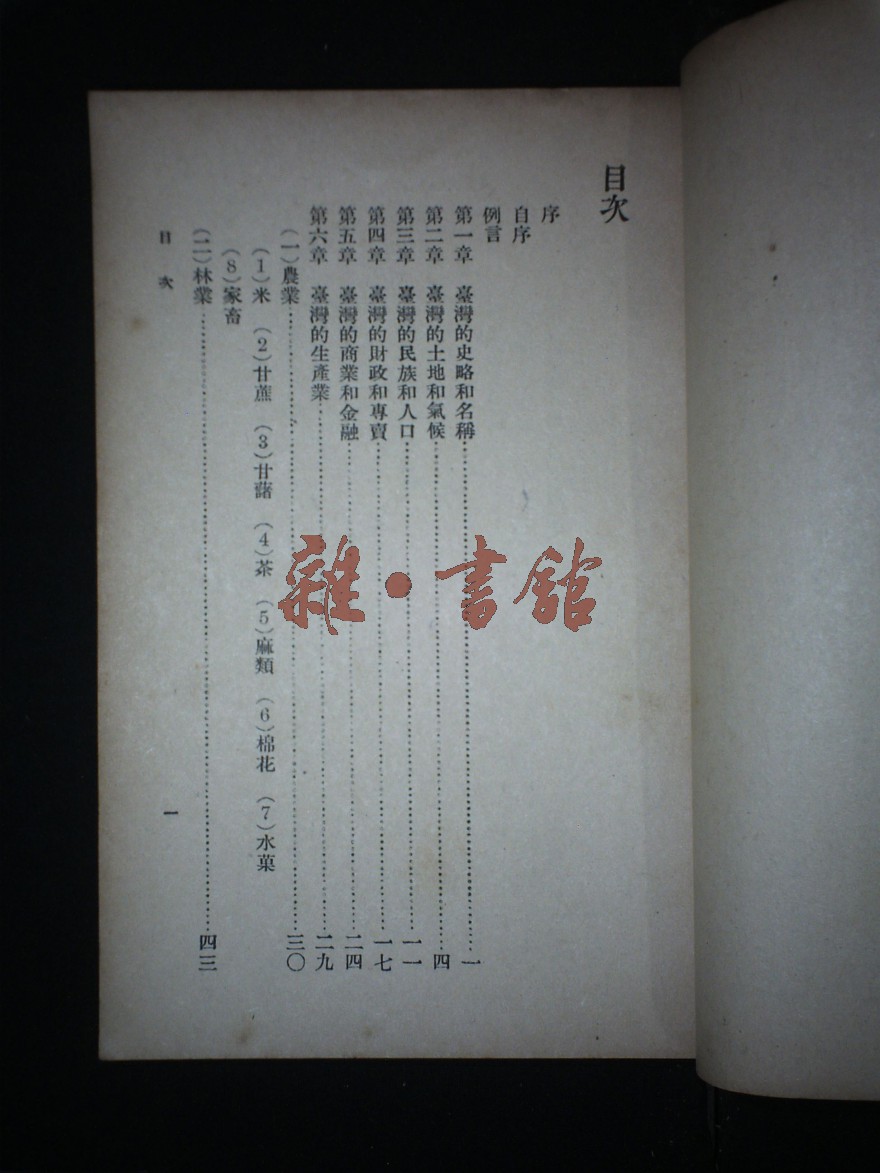 目次
序
自序
例言
第一章　臺灣的史略和名稱……一
第二章　臺灣的土地和氣候……四
第三章　臺灣的民族和人口……一一
第四章　臺灣的財政和專賣……一七
第五章　臺灣的商業和金融……二四
第六章　臺灣的生產業……二九
（一）農業……三〇
（1）米　（2）甘蔗　（3）甘藷　（4）茶　（5）麻類　（6）棉花　（7）水菓
（8）家畜
（二）林業……四三
目次　一
雜·書館